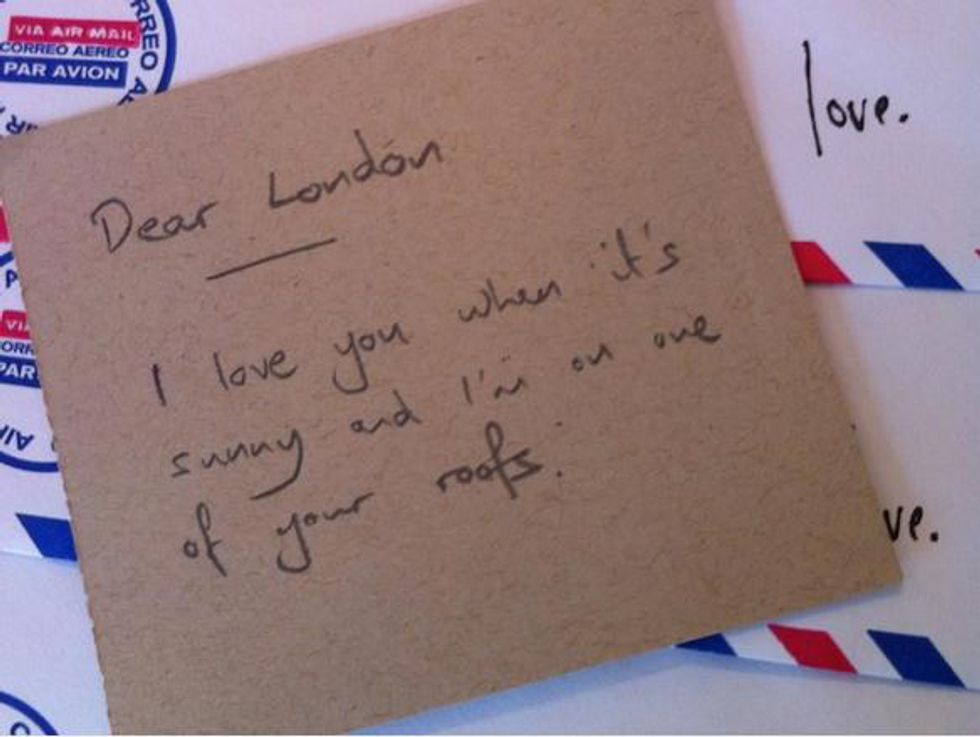 VIA AIR MAIL
CORREO AEREO
PAR AVION
love.
Dear London
I love you when it's
sunny and I'm on one
of your roofs.